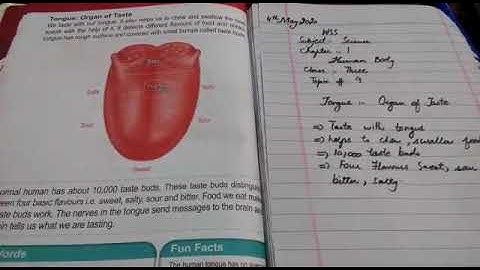 Tongue: Organ of Taste
We taste with our tongue. It also helps us to chew and swallow the food
speak with the help of it. It detects different flavours of food and
tongue has rough surface and covered with small bumps called taste buds
Bitter
Salty
Salty
Sour
Sour
Sweet
ormal human has about 10,000 taste buds. These taste buds distingu
een four basic flavours i.e. sweet, salty, sour and bitter. Food we eat ma
aste buds work. The nerves in the tongue send messages to the brain a
ain tells us what we are tasting.
ords
Fun Facts
The human tongue has
4th May 2020
Subject Science
Chapter : 1
Human Body
Class : Three
Topic # 9
Tongue :- Organ of Taste
⇒ Taste with tongue
⇒ helps to chew, swallow food
⇒ 10,000 taste buds
⇒ Four Flavours Sweat, sour
bitter, salty